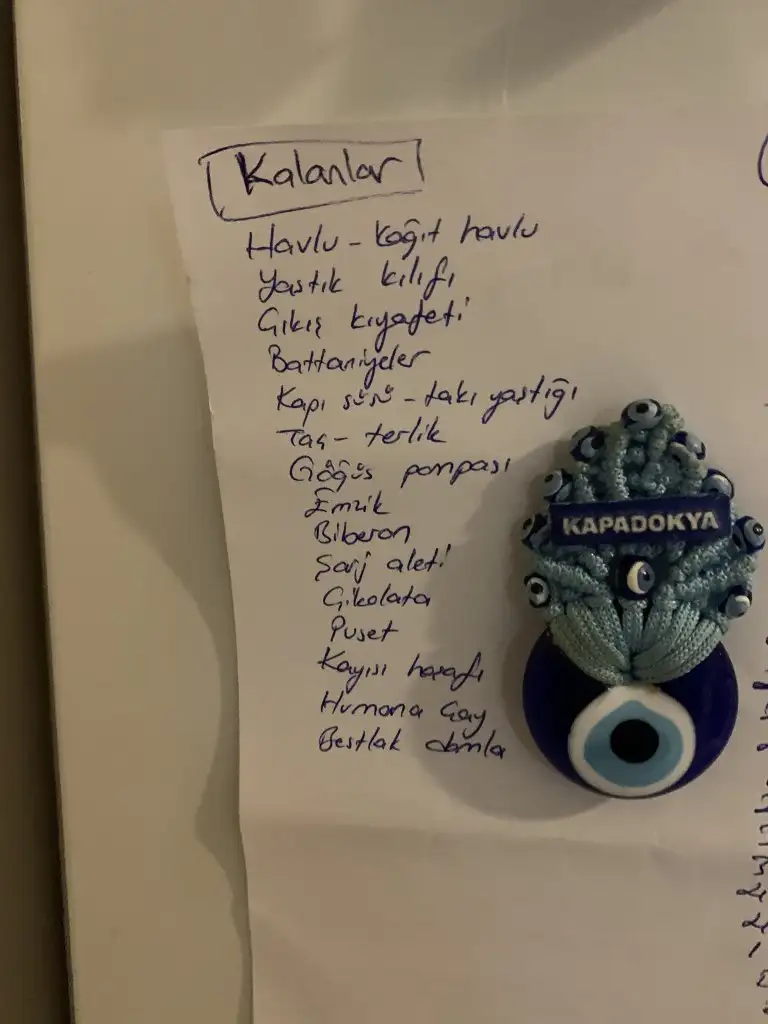 Kalanlar
Havlu - kağıt havlu
Yastık kılıfı
Çıkış kıyafeti
Battaniyeler
Kapı süsü - takı yastığı
Taç - terlik
Göğüs pompası
Emzik
Biberon
Şarj aleti
Çikolata
Puset
Kayısı hoşafı
Humana Çay
Bestlak damla
KAPADOKYA